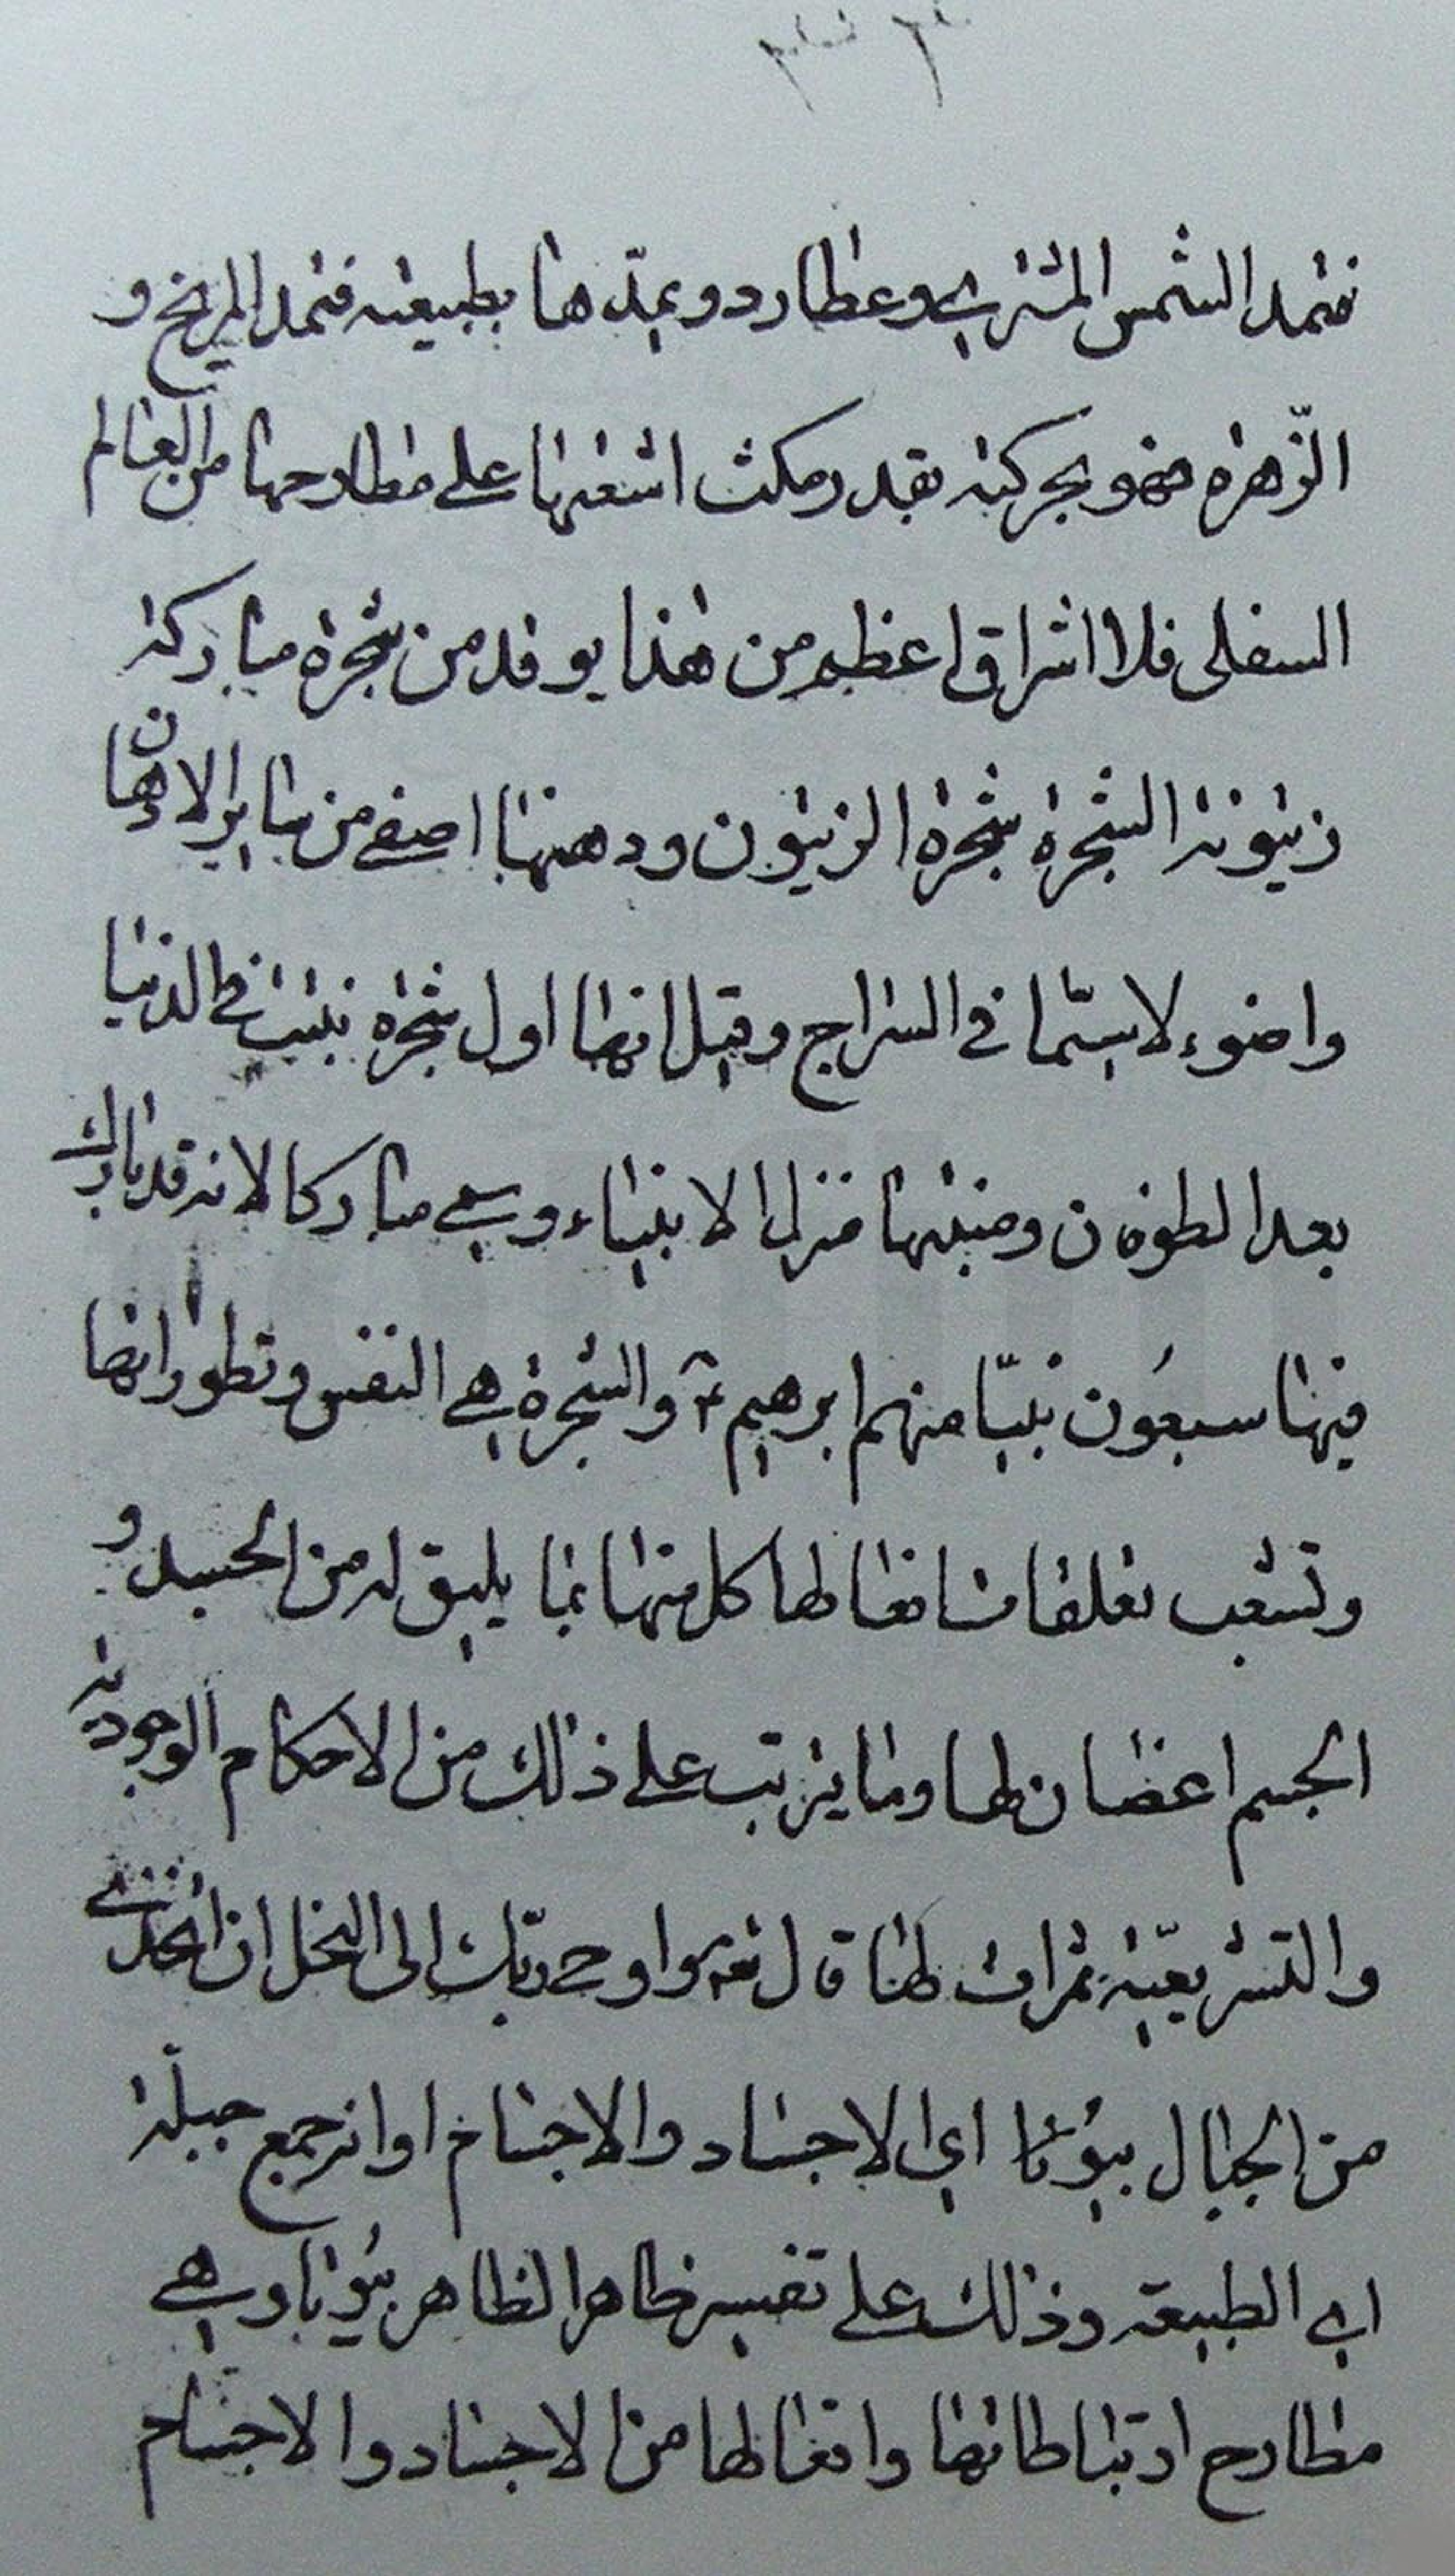 فتمد الشمس المشتری وعطارد و یمدّها بطبیعته فتمد المریخ و
الزّهرة فهو بحرکته بقدر مکث اشعتها علی مطارحها من العالم
السفلی فلا اشراق اعظم من هذا یوقد من شجرة مبارکة
زیتونة الشجرة شجرة الزیتون ودهنها اصفی من سایر الادهان
واضوء لاسیّما فی السراج وقیل انها اول شجرة نبتت فی الدنیا
بعد الطوفان ومنبتها منزل الانبیاء وسمی مبارکا لانه قد بارک
فیها سبعُون نبیّا منهم ابرهیم ع والشجرة هی النفس وتطوراتها
وتشعب تعلقات افعالها کل منها بما یلیق له من الجسد و
الجسم اغصان لها وما یترتب علی ذلک من الاحکام الوجودیة
والتشریعیّة ثمرات لها قال تعالی واوحی ربّک الی النحل ان اتخذی
من الجبال بیُوتا ای الاجساد والاجسام او انه جمع جبلّة
ای الطبیعة وذلک علی تفسیر ظاهر الظاهر بیُوتا وهی
مطارح ارتباطاتها وافعالها من الاجساد والاجسام